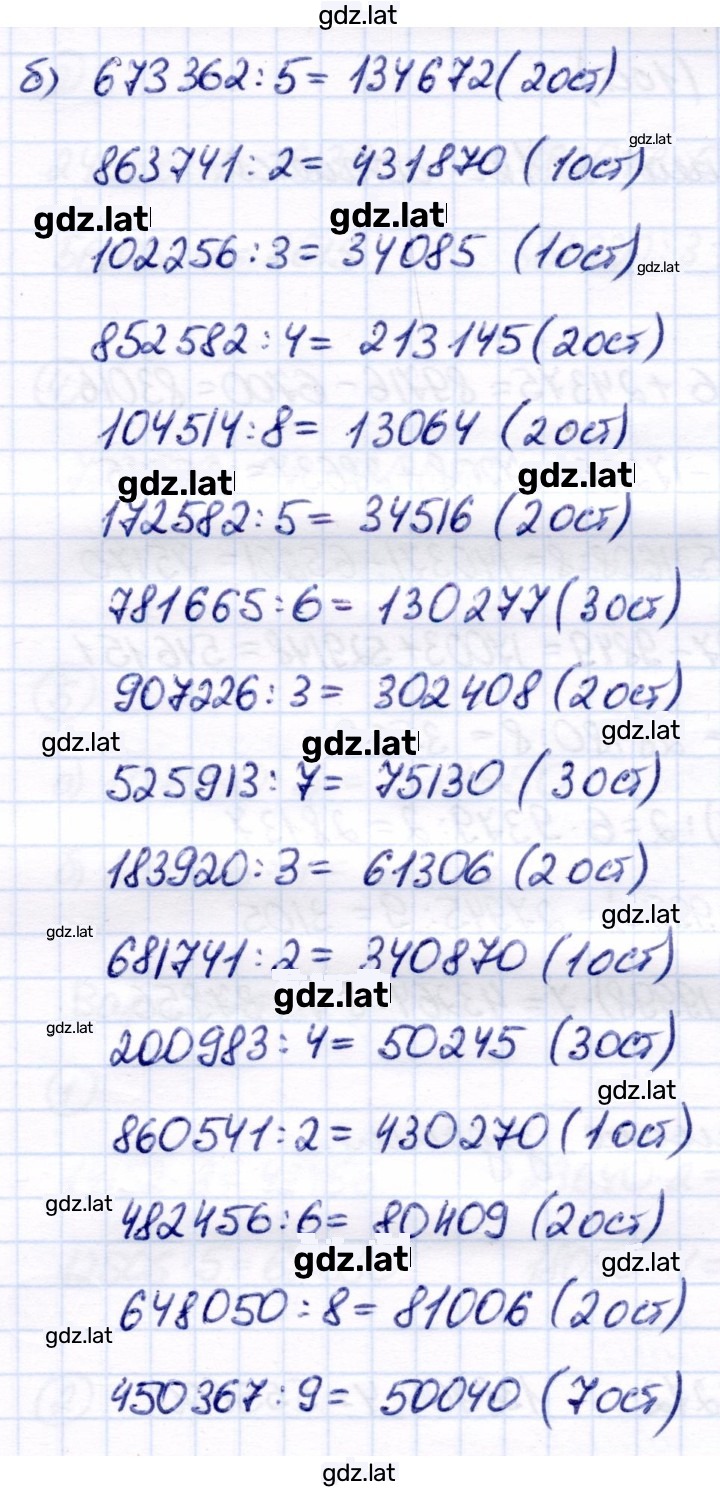 gdz.lat
б) 673362:5= 134672(2ост)
gdz.lat
863741:2= 431870 (1ост)
gdz.lat gdz.lat
102256:3= 34085 (1ост)
gdz.lat
852582:4= 213145(2ост)
104514:8= 13064 (2ост)
gdz.lat gdz.lat
172582:5= 34516 (2ост)
781665:6= 130277(3ост)
907226:3= 302408(2ост)
gdz.lat gdz.lat gdz.lat
525913:7= 75130 (3ост)
183920:3= 61306 (2ост)
gdz.lat
gdz.lat
681741:2= 340870 (1ост)
gdz.lat
gdz.lat
200983:4= 50245 (3ост)
gdz.lat
860541:2= 430270(1ост)
gdz.lat
482456:6= 80409 (2ост)
gdz.lat gdz.lat
648050:8= 81006 (2ост)
gdz.lat
450367:9= 50040 (7ост)
gdz.lat